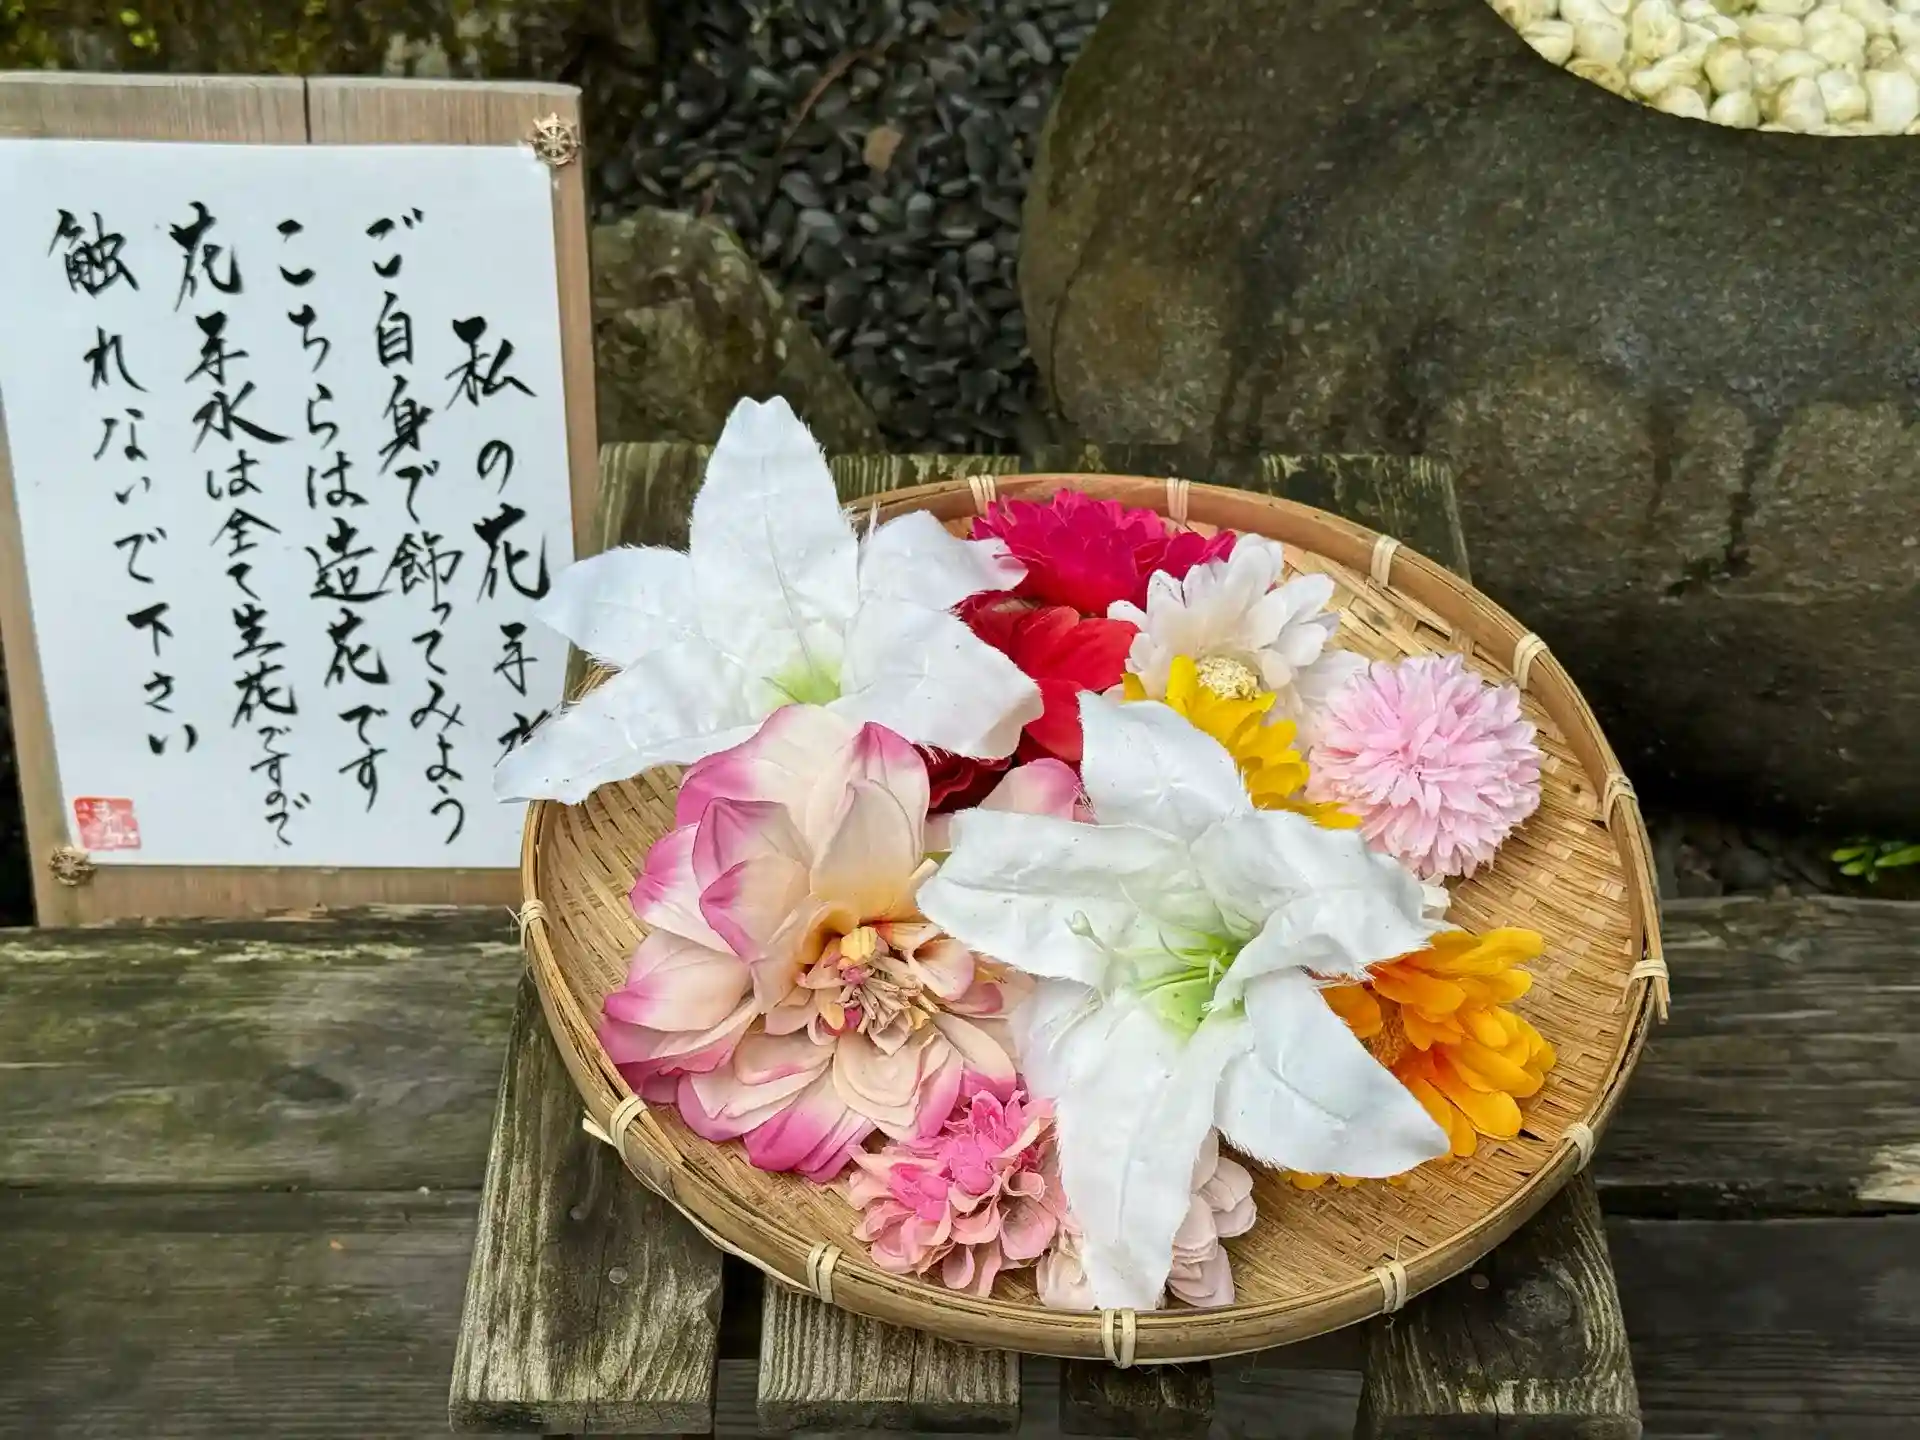 私の花手水
ご自身で飾ってみよう
こちらは造花です
花手水は全て生花ですので
触れないで下さい